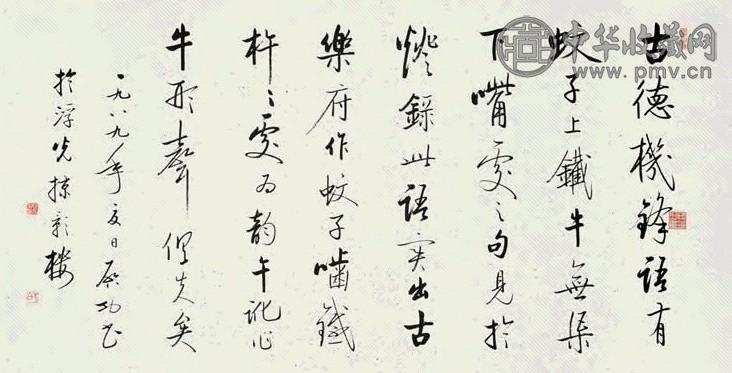 中华收藏网
www.pmv.cn
古德機鋒語有
蚊子上鐵牛無渠
下嘴處之句見於
燈錄此語实出古
樂府作蚊子嚙鐵
杵〻處为韵午訛作
牛形聲俱失矣
一九八九年夏日啟功書
於浮光掠影樓